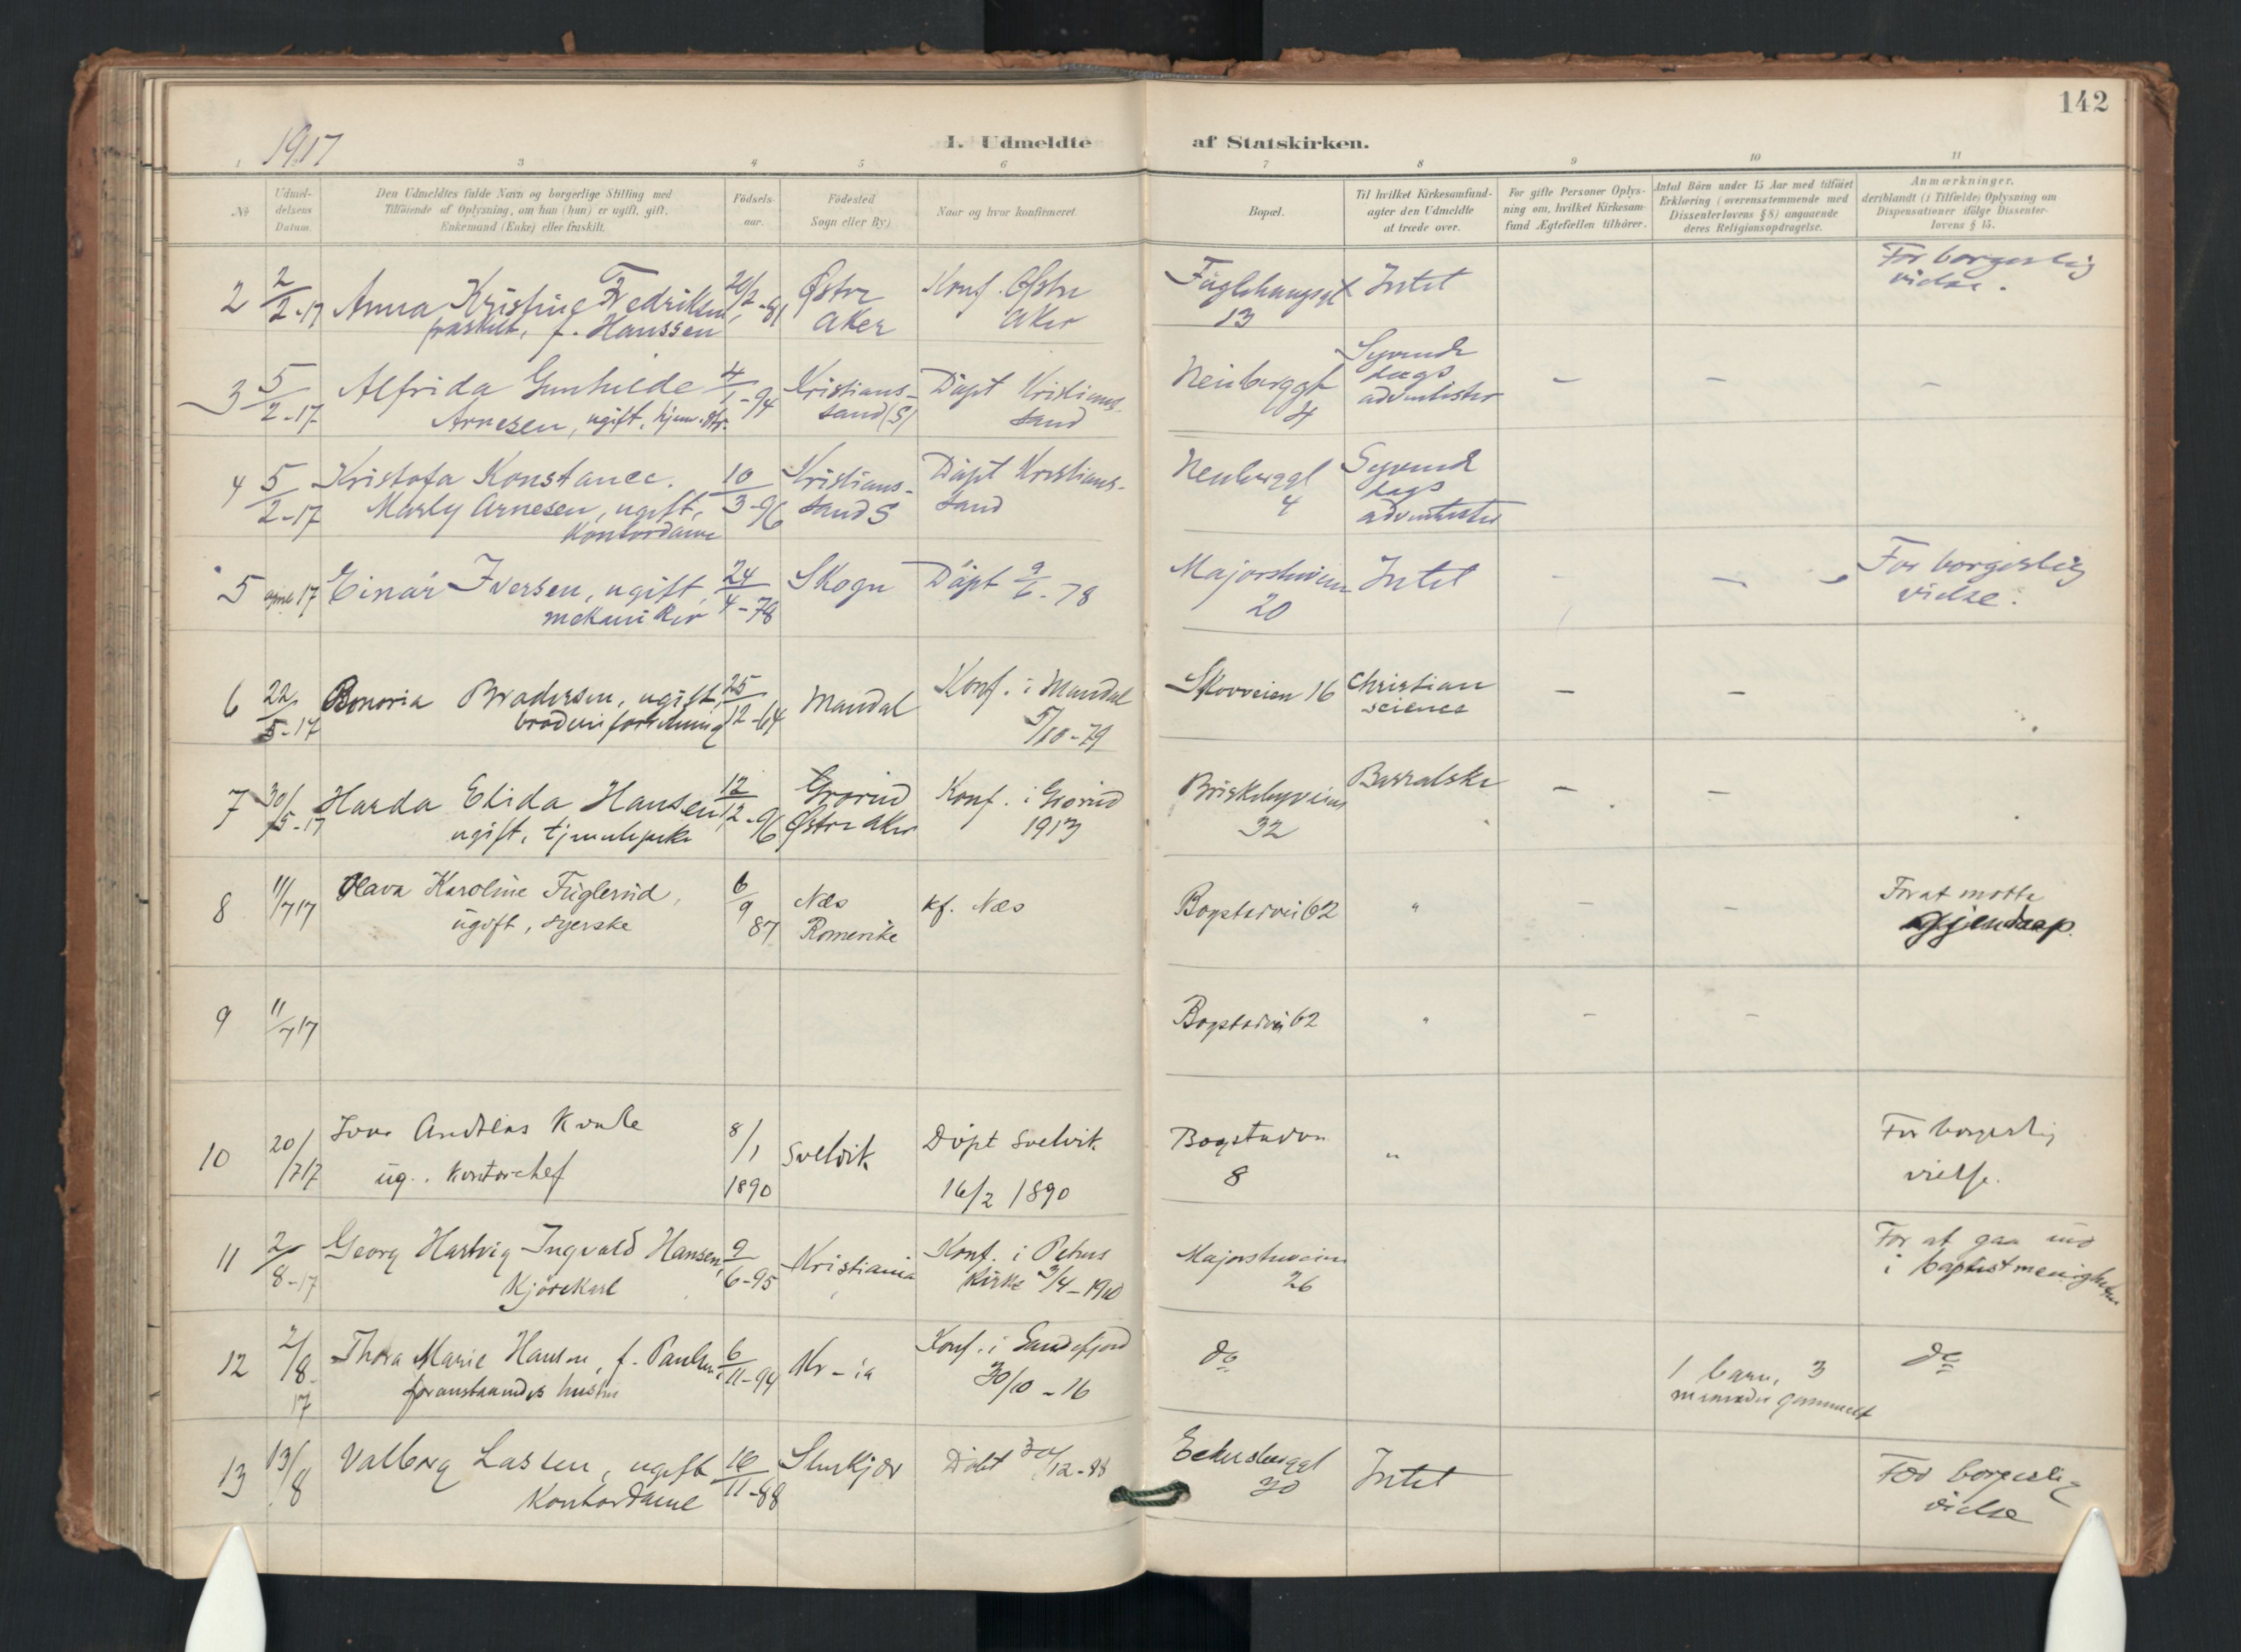 142
1917
I. Udmeldte af Statskirken.
1 3 4 5 6 7 8 9 10 11
№
Udmel-
delsens
Datum.
Den Udmeldtes fulde Navn og borgerlige Stilling med
Tilföiende af Oplysning, om han (hun) er ugift, gift,
Enkemand (Enke) eller fraskilt.
Födsels-
aar.
Födested
Sogn eller By)
Naar og hvor konfirmeret.
Bopæl.
Til hvilket Kirkesamfund-
agter den Udmeldte
at træde over.
For gifte Personer Oplys-
ning om, hvilket Kirkesam-
fund Ægtefællen tilhörer.
Antal Börn under 15 Aar med tilföiet
Erklæring (overensstemmende med
Dissenterlovens § 8) angaaende
deres Religionsopdragelse.
Anmærkninger,
deriblandt (i Tilfælde) Oplysning om
Dispensationer ifölge Dissenter-
lovens § 15.
2 2/2-17 Anna Kristine Fredriksen, 20/2-81 Östre Konf. Östre Fuglehaugsgt Intet For borgerlig
fraskilt, f. Hanssen Aker Aker 13 vielse.
3 5/2-17 Alfrida Gunhilde 4/1-94 Kristians- Döpt Kristians- Neuberggt Syvende - - -
Arnesen, ugift, sand (S) sand 4 dags
adventister
4 5/2-17 Kristofa Konstance 10/3-96 Kristians- Döpt Kristians- Neuberggt Syvende
Marly Arnesen, ugift, sand S sand 4 dags
kontordame adventister
5 17 Einar Iversen, ugift, 24/4-78 Skogn Döpt 9/6-78 Majorstuveien Intet - - For borgerlig
mekaniker 20 vielse.
6 22/5-17 ugift, 25/12-64 Mandal Konf. i Mandal Skovveien 16 Christian - -
broderiforretning 5/10-79 science
7 30/5-17 Harda Elida Hansen 12/12-96 Grorud Konf. i Grorud Briskebyveien - -
ugift, Östre Aker 1913 32
8 11/7 17 Olava Karoline Fuglerud, 6/9 Næs kf. Næs Bogstadvei 62 " - - For at motta
ugift, syerske 87 Romerike gjendaap.
9 11/7 17 Bogstadvei 62 " - -
10 20/7 17 Andreas 8/1 Svelvik Döpt Svelvik Bogstadvn " For borgerlig
ug. kontorchef 1890 16/2 1890 8 vielse.
11 2/8-17 Georg Hartvig Ingvald Hansen, 9/6-95 Kristiania Konf. i Petrus Majorstuveien For at gaa ind
Kjörekarl Kirke 3/4-1910 26 i baptistmenigheten
12 2/8-17 Thora Marie Hansen, f. Paulsen, 6/11-94 Kr-ia Konf. i Sandefjord do 1 barn, 3 do
foranstaaendes hustru 30/10-16 maaneder gammelt
13 13/8 Valborg Lassen, ugift 16/11-88 Döbt 30/12-88 Eckersberggt Intet For borgerlig
Kontordame 30 vielse